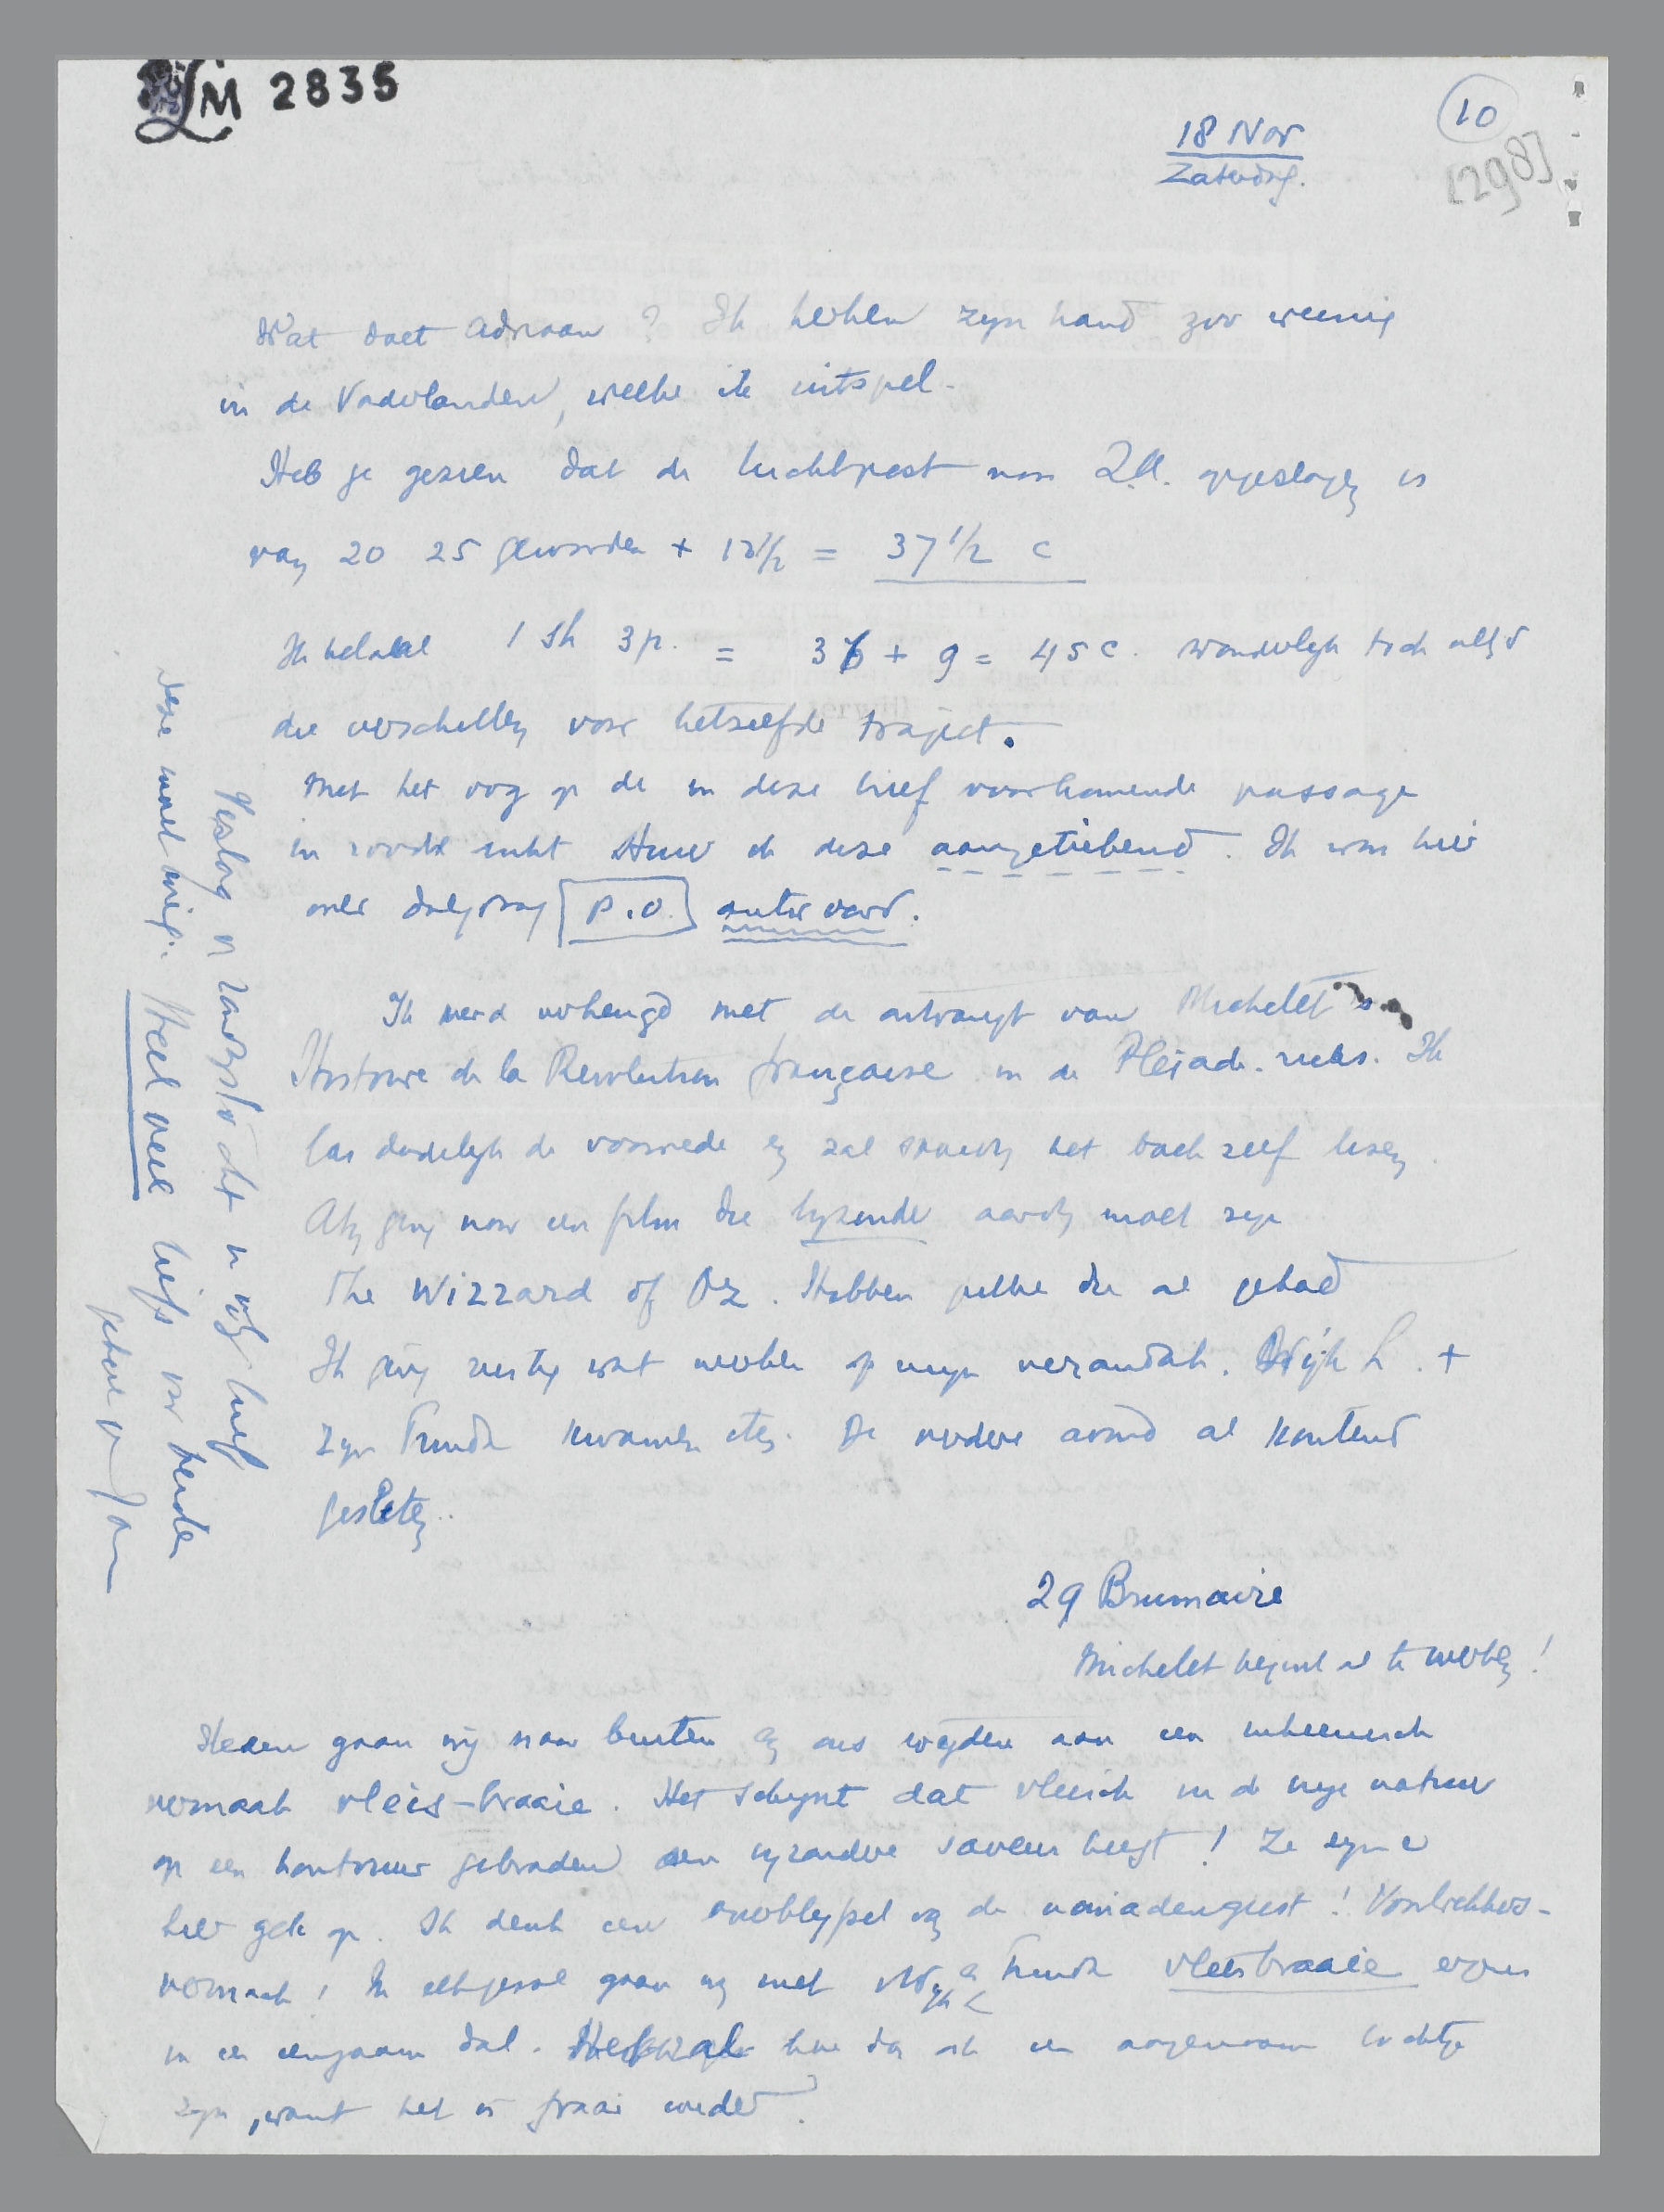 LM 2835
10
[298]
18 Nov
Zaterdag.
Wat doet Adriaan? Ik herken zijn hand zoo weinig
in de Vaderlanden, welke ik uitspel.
Heb je gezien dat de luchtpost van Z.A. opgeslagen is
van 20 25 geworden + 12 1/2 = 37 1/2 c
Ik betaal 1 sh 3 p. = 36 + 9 = 45 c. wonderlijk toch altijd
die verschillen voor hetzelfde traject.
Met het oog op de in deze brief voorkomende passage
in roode inkt stuur ik deze aangetekend. Ik wou hier
over dolgraag P.O. antwoord.
Ik werd verheugd met de ontvangst van Michelet's
Histoire de la Revolution française in de Pleiade-reeks. Ik
las dadelijk de voorrede en zal spoedig het boek zelf lezen.
Aty ging naar een film die byzonder aardig moet zijn
The Wizzard of Oz. Hebben jullie die al gehad
Ik ging rustig wat werken op mijn verandah. Wijk L. +
zijn Truida kwamen eten. De verdere avond al koutend
gesleten.
29 Brumaire
Michelet begint al te werken!
Heden gaan wij naar buiten en ons wijden aan een inheemsch
vermaak vleis-braaie. Het schijnt dat vleesch in de vrije natuur
op een houtvuur gebraden een byzondere saveur heeft! Ze zijn er
hier gek op. Ik denk een overblijfsel van de nomadengeest! Voortrekkers-
vermaak! In elk geval gaan wij met Wijk L en Truida vleisbraaie ergens
in een eenzaam dal. Het zal hoe dan ook een aangenaam tochtje
zijn, want het is fraai weder.
Verslag van randzs in mijn brief
deze moet weg. Heel veel liefs voor beiden
geheel uw Jan